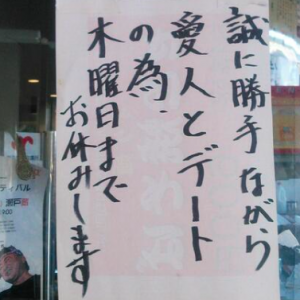 誠に勝手ながら
愛人とデート
の為、
木曜日まで
お休みします
ディバル
瀬戸